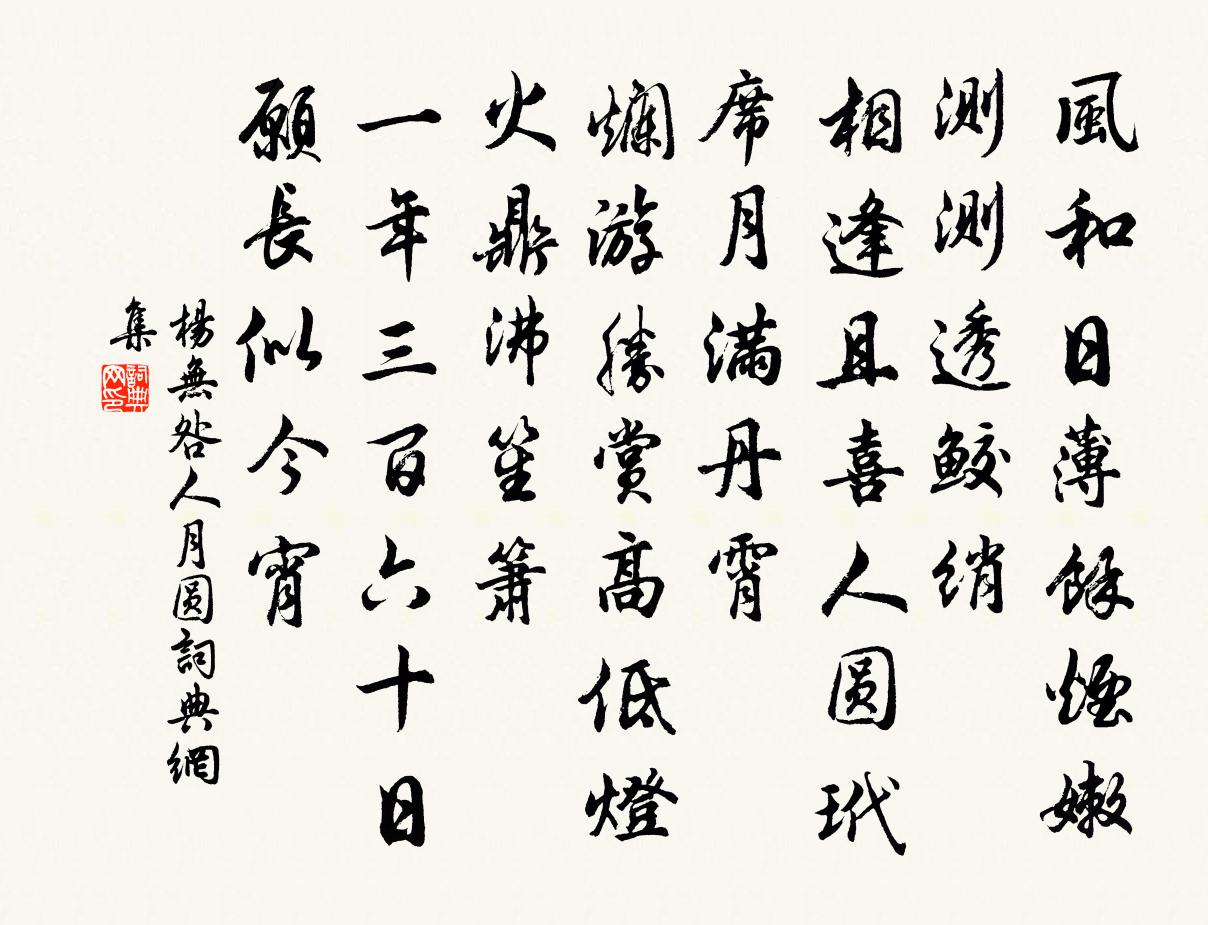 風和日薄餘煙嫩
測測透鮫綃
相逢且喜人圓玳
席月滿丹霄
爛游勝賞高低燈
火鼎沸笙簫
一年三百六十日
願長似今宵
楊無咎人月圓詞典網
集
詞典
网印